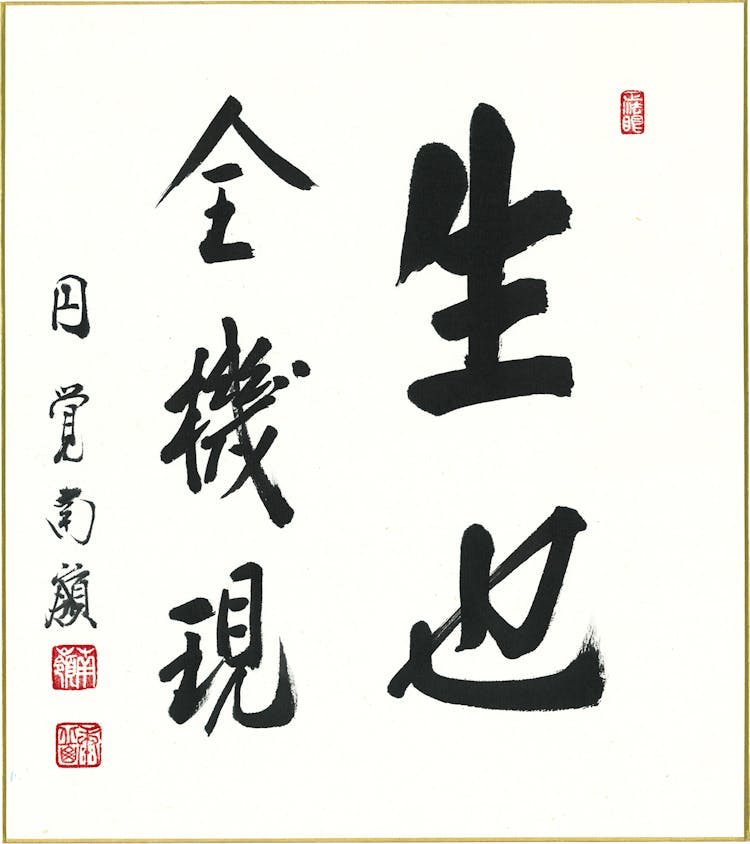 生也
全機現
円覚南嶺
南嶺